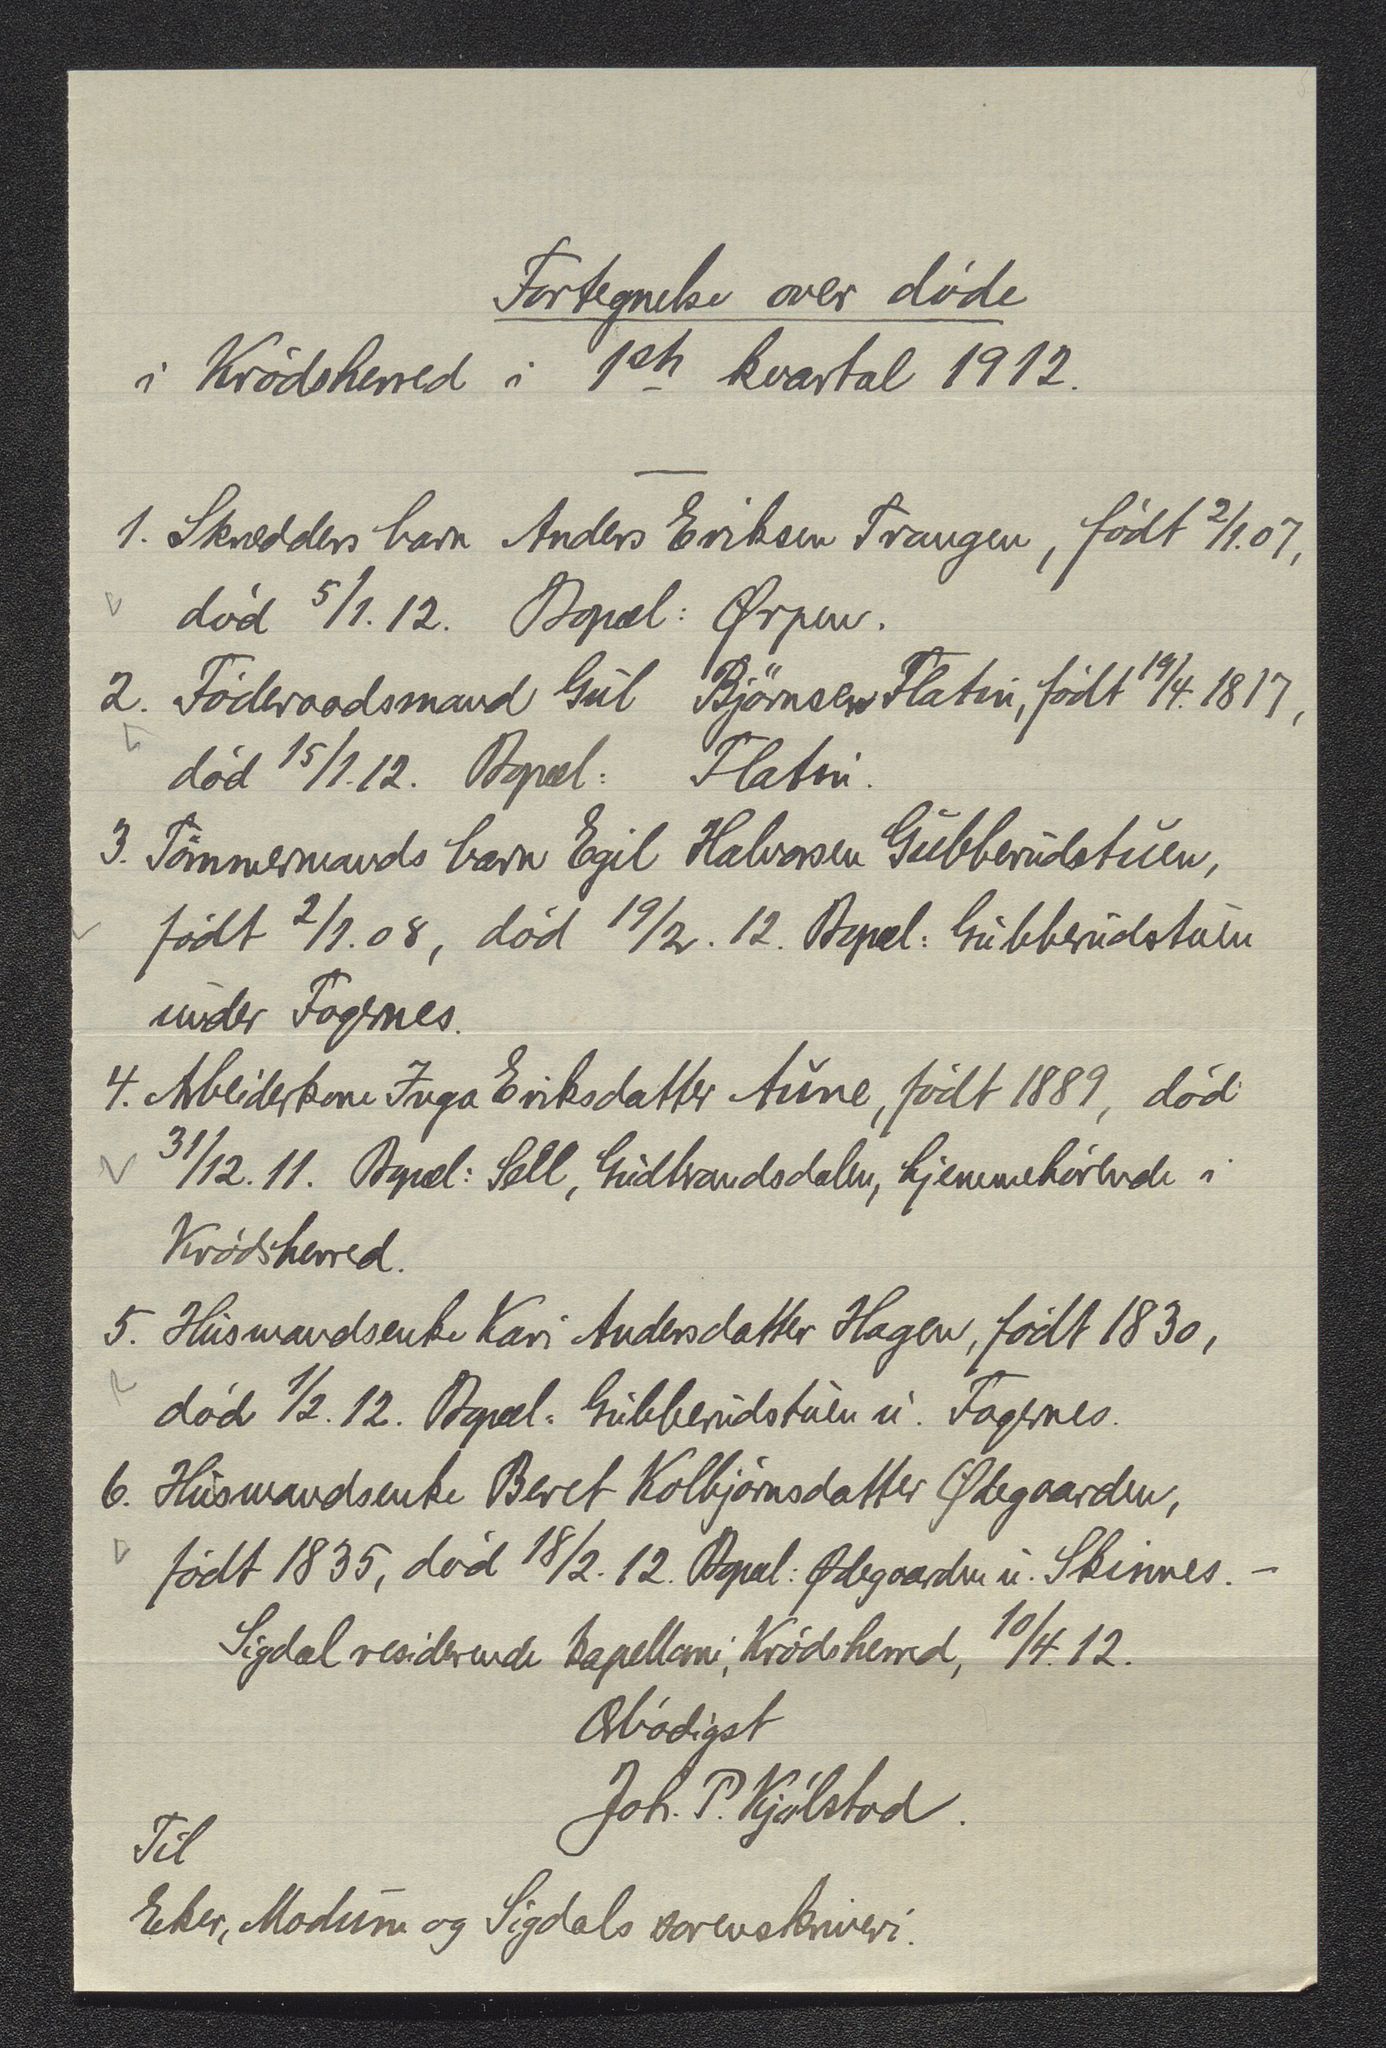 Fortegnelse over døde
i Krødsherred i 1ste kvartal 1912.
1. Skredders barn Anders Eriksen Trangen, født 2/1.07,
død 5/1.12. Bopæl: Ørpen.
2. Føderaadsmand Gul Bjørnsen Flatin, født 19/4.1817,
død 15/1.12. Bopæl: Flatin.
3. Tømmermands barn Egil Halvorsen Gubberudstuen,
født 2/1.08, død 19/2.12. Bopæl: Gubberudstuen
under Fagernes.
4. Arbeiderkone Inga Eriksdatter Aune, født 1889, død
31/12.11. Bopæl: Sell, Gudbrandsdalen, hjemmehørende i
Krødsherred.
5. Husmandsenke Kari Andersdatter Hagen, født 1830,
død 1/2.12. Bopæl: Gubberudstuen u. Fagernes.
6. Husmandsenke Beret Kolbjørnsdatter Ødegaarden,
født 1835, død 18/2.12. Bopæl: Ødegaarden u. Skinnes. –
Sigdal residerende kapellani, Krødsherred, 10/4.12.
Ærbødigst
Joh. P. Kjølstad.
Til
Eker, Modum og Sigdals sorenskriveri.